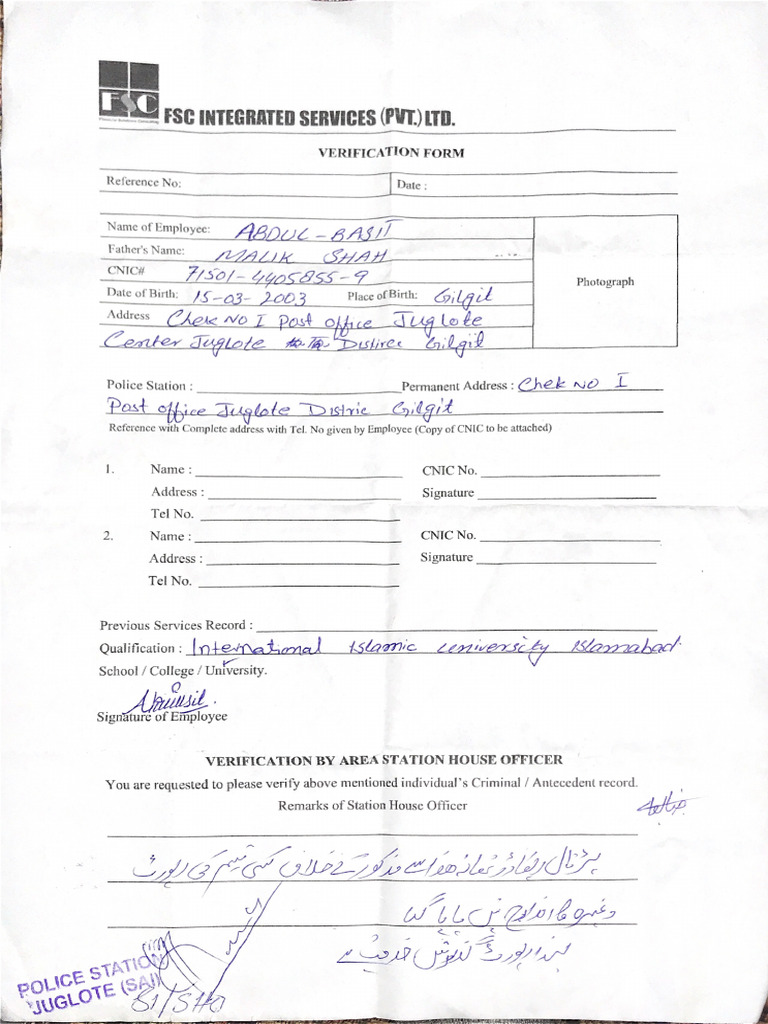 FSC
FSC INTEGRATED SERVICES (PVT.) LTD.
VERIFICATION FORM
Reference No: Date :
Name of Employee: ABDUL-BASIT
Father's Name: MALIK SHAH
CNIC# 71501-4405855-9
Date of Birth: 15-03-2003 Place of Birth: Gilgit
Photograph
Address Chek NO I Post office Juglote
Center Juglote Distirec Gilgit
Police Station : Permanent Address : Chek NO I
Post office Juglote Distric Gilgit
Reference with Complete address with Tel. No given by Employee (Copy of CNIC to be attached)
1. Name : CNIC No.
Address : Signature
Tel No.
2. Name : CNIC No.
Address : Signature
Tel No.
Previous Services Record :
Qualification : International Islamic University Islamabad.
School / College / University.
Signature of Employee
VERIFICATION BY AREA STATION HOUSE OFFICER
You are requested to please verify above mentioned individual's Criminal / Antecedent record.
Remarks of Station House Officer
پڑتال ریکارڈ تھانہ ھذا سے مذکور کے خلاف کسی قسم کی رپورٹ
وغیرہ کا اندراج نہیں پایا گیا
رپورٹ گذارش خدمت ہے
POLICE STATION
JUGLOTE (SAI)
SI/SHO